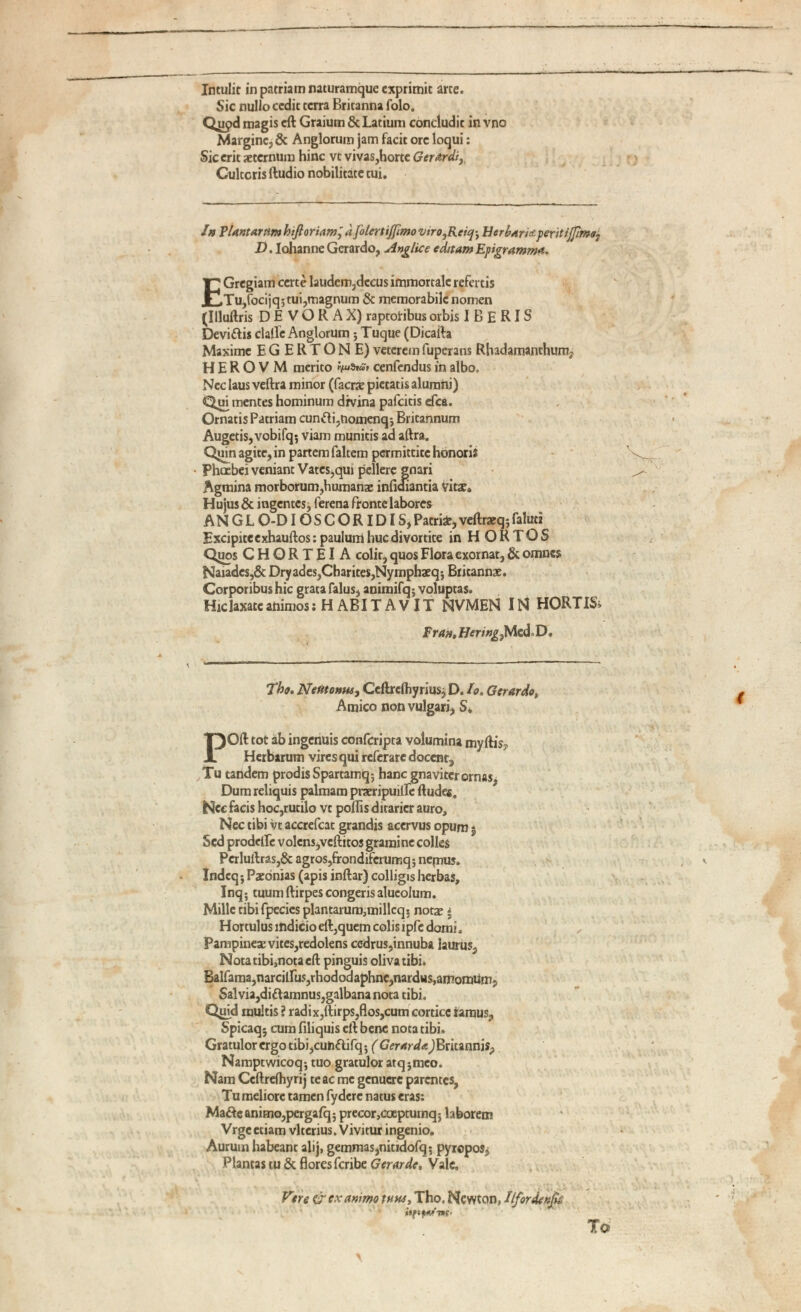 Intulit in patriam naturamque exprimit arte.
Sic nullo cedit terra Britanna ſolo.
Quod magis eſt Graium & Latium concludit in vno
Margine, & Anglorum jam facit ore loqui:
Sic erit æternum hinc vt vivas, horte Gerardi,
Cultoris ſtudio nobilitate tui.
In Plantarum hiſtoriam, à ſolertiſſimo viro, Reiq; Herbariæ peritiſſimo,
D. Iohanne Gerardo, Anglice editam Epigramma.
EGregiam certè laudem, decus immortale refertis
Tu, ſocijq; tui, magnum & memorabile nomen
(Illuſtris DEVORAX) raptoribus orbis IBERIS
Devictis claſſe Anglorum; Tuque (Dicaſta
Maxime EGERTONE) veterem ſuperans Rhadamanthum,
HEROVM merito cenſendus in albo.
Nec laus veſtra minor (ſacræ pietatis alumni)
Qui mentes hominum divina paſcitis eſca.
Ornatis Patriam cuncti, nomenq; Britannum
Augetis, vobiſq; viam munitis ad aſtra.
Quin agite, in partem ſaltem permittite honoris
Phœbei veniant Vates, qui pellere gnari
Agmina morborum, humanæ inſidiantia vitæ.
Hujus & ingentes, ſerena fronte labores
ANGLO-DIOSCORIDIS, Patriæ, veſtræq; ſaluti
Excipite exhauſtos: paulum huc divortite in HORTOS
Quos CHORTEIA colit, quos Flora exornat, & omnes
Naiades, & Dryades, Charites, Nymphæq; Britannæ.
Corporibus hic grata ſalus, animiſq; voluptas.
Hic laxate animos: HABITAVIT NVMEN IN HORTIS.
Fran. Hering, Med. D.
Tho. Newtonus, Ceſtreſhyrius, D. Io. Gerardo,
Amico non vulgari, S.
POſt tot ab ingenuis conſcripta volumina myſtis,
Herbarum vires qui reſerare docent,
Tu tandem prodis Spartamq; hanc gnaviter ornas,
Dum reliquis palmam præripuiſſe ſtudes.
Nec facis hoc, rutilo vt poſſis ditarier auro,
Nec tibi vt accreſcat grandis acervus opum;
Sed prodeſſe volens, veſtitos gramine colles
Perluſtras, & agros, frondiferumq; nemus.
Indeq; Pæonias (apis inſtar) colligis herbas,
Inq; tuum ſtirpes congeris alueolum.
Mille tibi ſpecies plantarum, milleq; notæ;
Hortulus indicio eſt, quem colis ipſe domi.
Pampineæ vites, redolens cedrus, innuba laurus,
Nota tibi, nota eſt pinguis oliva tibi.
Balſama, narciſſus, rhododaphne, nardus, amomum,
Salvia, dictamnus, galbana nota tibi.
Quid multis? radix, ſtirps, flos, cum cortice ramus,
Spicaq; cum ſiliquis eſt bene nota tibi.
Gratulor ergo tibi, cunctiſq; (Gerarda) Britannis,
Namptwicoq; tuo gratulor atq; meo.
Nam Ceſtreſhyrij te ac me genuere parentes,
Tu meliore tamen ſydere natus eras:
Macte animo, pergaſq; precor, cœptumq; laborem
Vrge etiam vlterius. Vivitur ingenio.
Aurum habeant alij, gemmas, nitidoſq; pyropos,
Plantas tu & flores ſcribe Gerarde. Vale.
Vere & ex animo tuus, Tho. Newton, Ilfordenſis
To